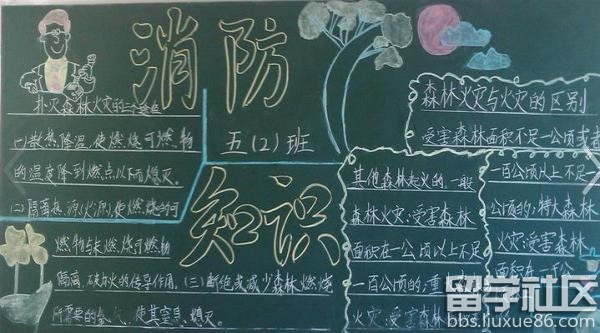 消防
知识
五（2）班
扑灭森林火灾的三个途径
(一)散热降温,使燃烧可燃物
的温度降到燃点以下而熄灭。
(二)隔离热源(火源),使燃烧的可
燃物与未燃烧可燃物
隔离,破坏火的传导作用。(三)断绝或减少森林燃烧
所需要的氧气,使其窒息熄灭。
森林火灾与火灾的区别
受害森林面积不足一公顷或者
其他森林起火的,一般
森林火灾:受害森林
面积在一公顷以上不足
一百公顷的;重
火灾:受害森林
一百公顷以上不足一
公顷的;特大森林
火灾:受害森林
面积在一
留学社区
bbs.liuxue86.com